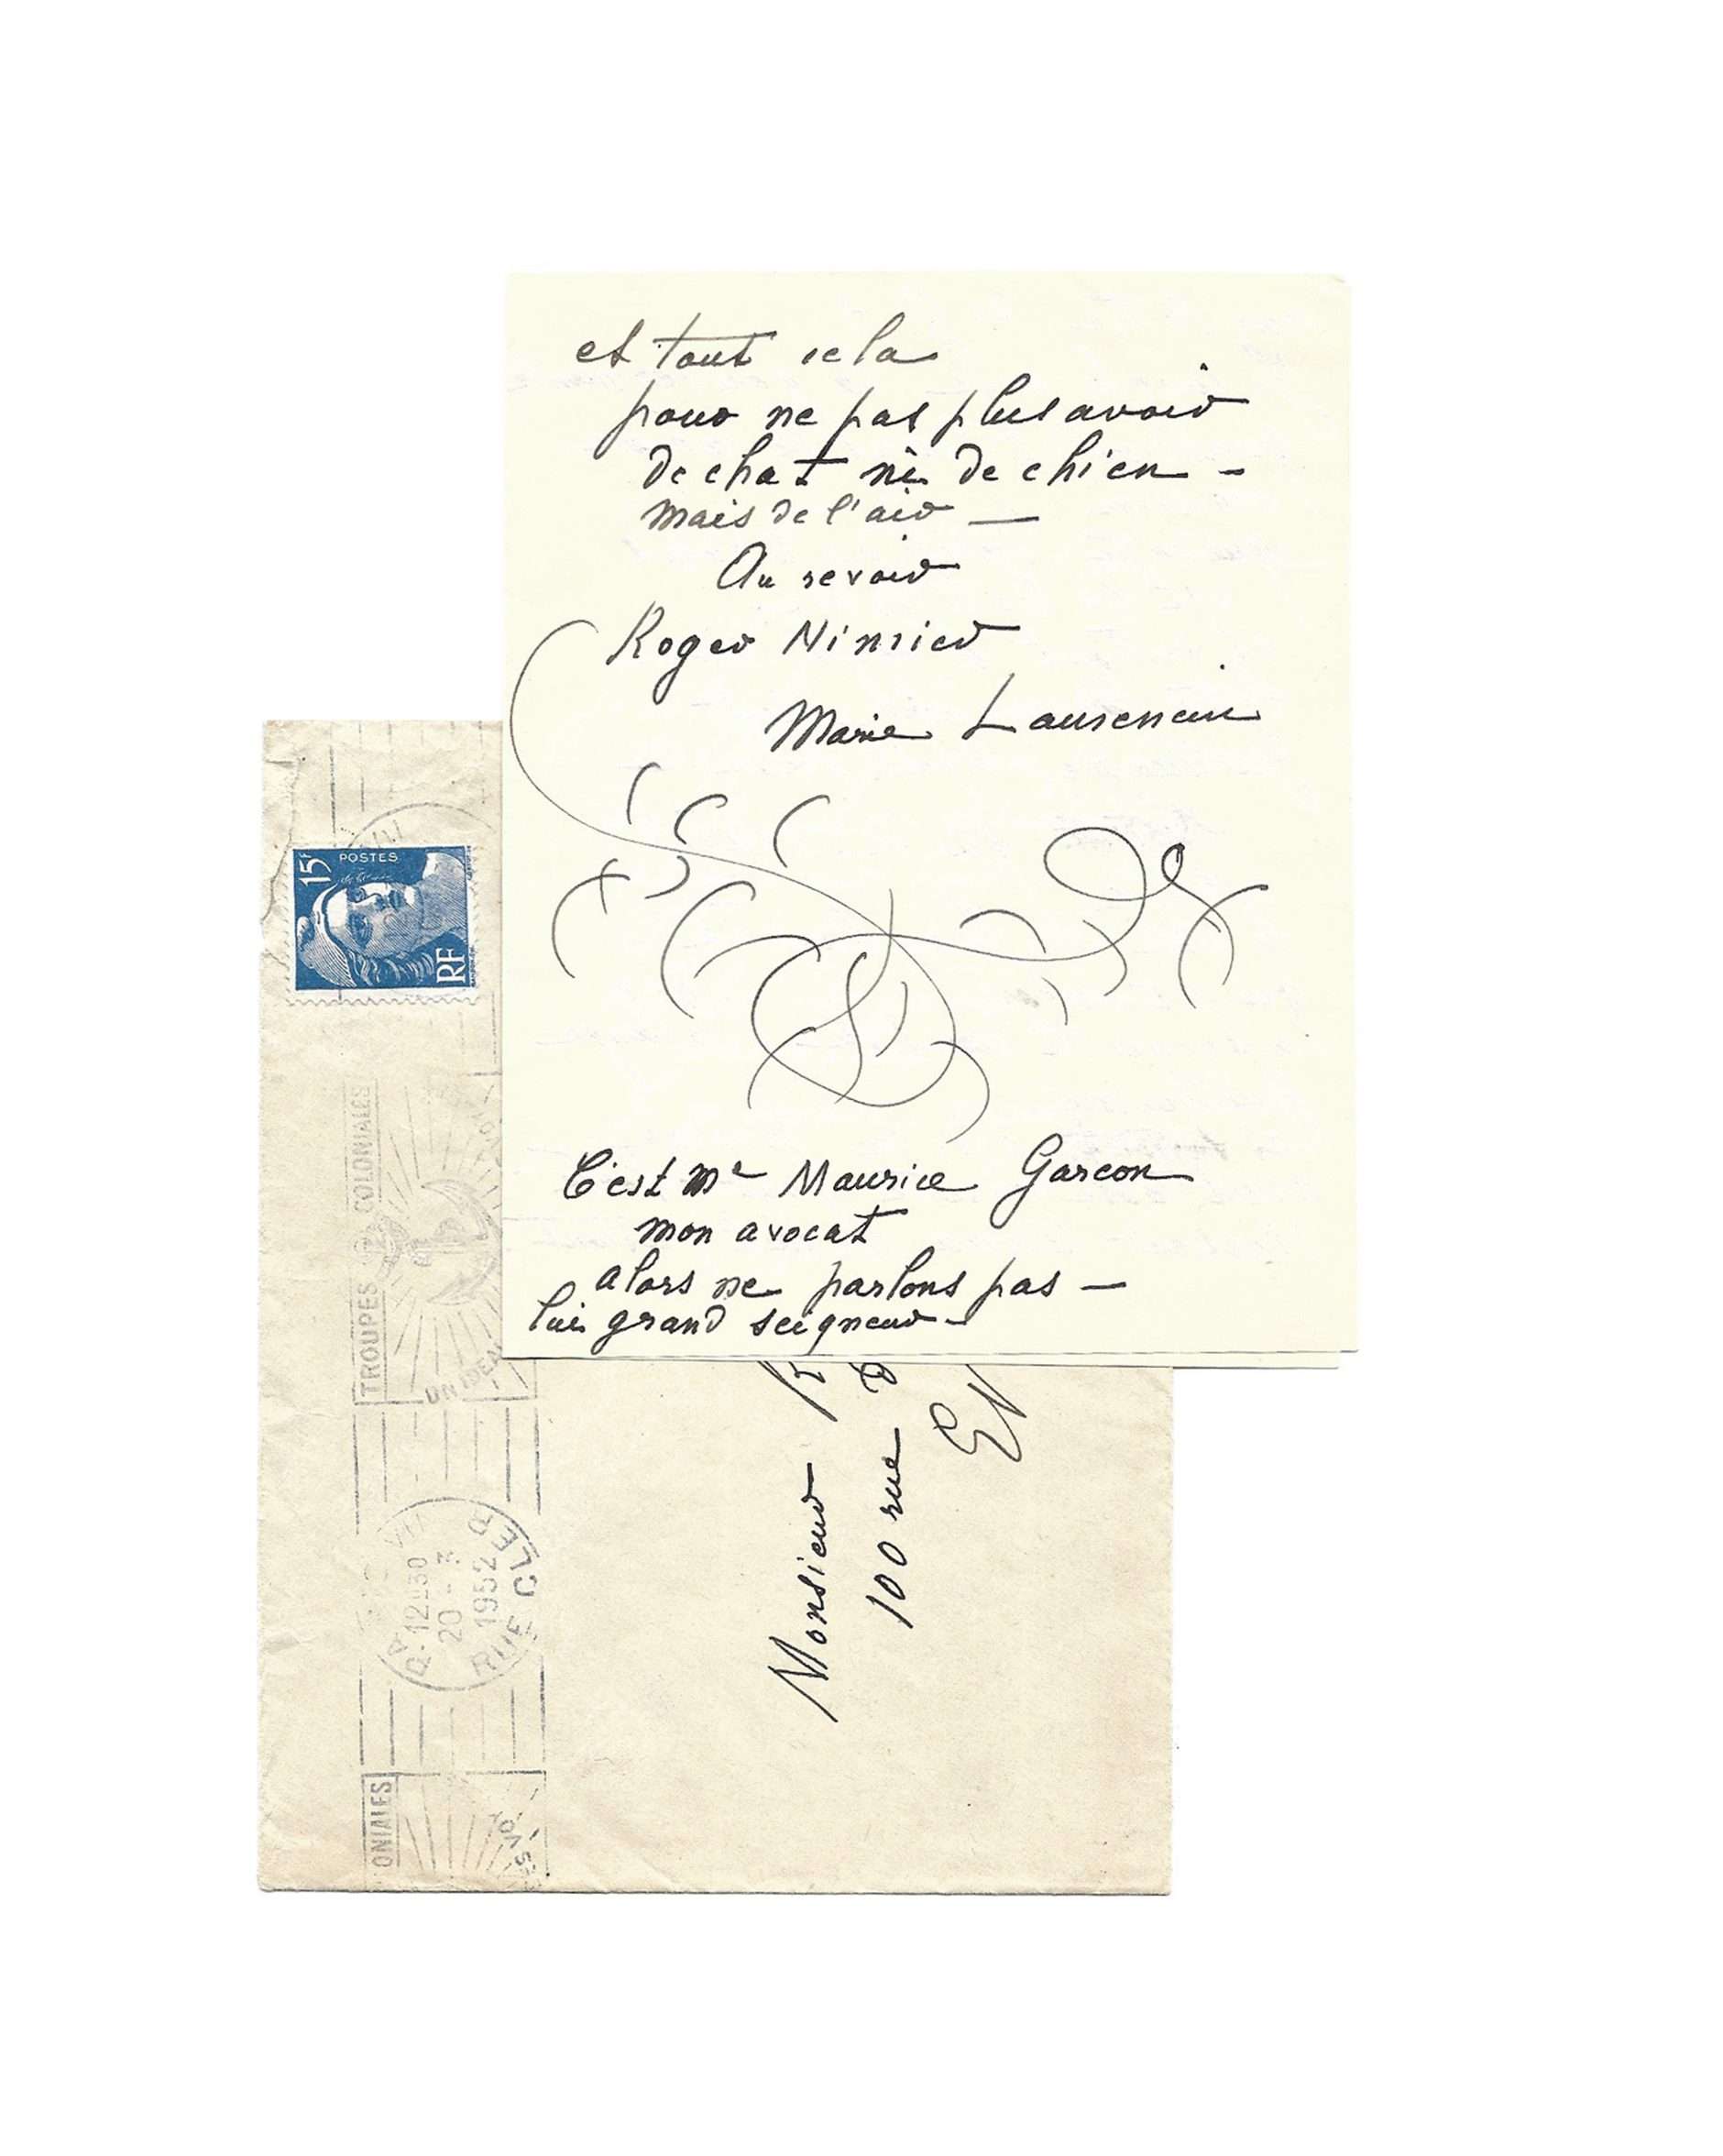 et tout cela
pour ne pas plus avoir
de chat ni de chien -
mais de l'air —
Au revoir
Roger Nimier
Marie Laurencin
C'est Me Maurice Garcon
mon avocat
alors ne parlons pas —
lui grand seigneur -
15F
POSTES
RF
TROUPES COLONIALES
UN IDEAL
12H30
20 - 3
1952
RUE CLER
ONIALES
Monsieur R
100 rue
EV